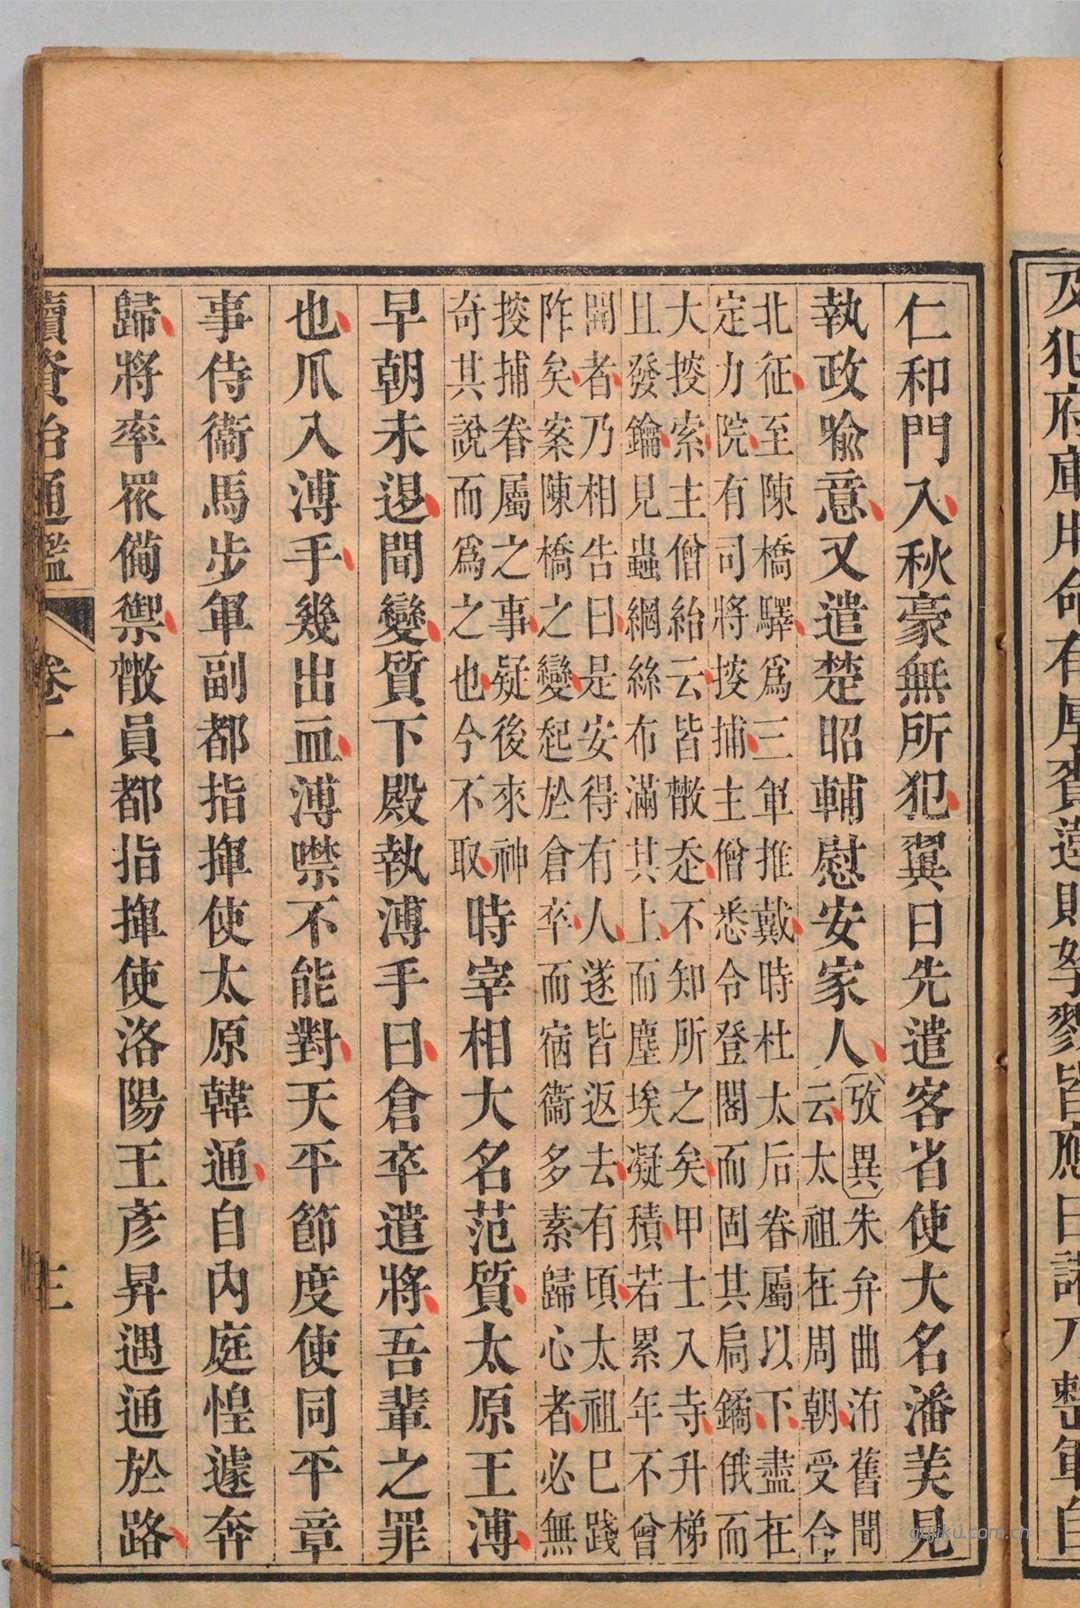 及犯府庫用命有厚賚違則孥戮皆應曰諾乃整軍自
仁和門入秋豪無所犯翼日先遣客省使大名潘美見
執政喻意又遣楚昭輔慰安家人
攷異朱弁曲洧舊聞
云太祖在周朝受命
北征至陳橋驛爲三軍推戴時杜太后眷屬以下盡在
定力院有司將搜捕主僧悉令登閣而固其扃鐍俄而
大搜索主僧紿云皆散走不知所之矣甲士入寺升梯
且發鑰見蟲網絲布滿其上而塵埃凝積若累年不曾
開者乃相告曰是安得有人遂皆返去有頃太祖已踐
阼矣案陳橋之變起於倉卒而宿衞多素歸心者必無
搜捕眷屬之事疑後來神
奇其說而爲之也今不取
時宰相大名范質太原王溥
早朝未退聞變質下殿執溥手曰倉卒遣將吾輩之罪
也爪入溥手幾出血溥噤不能對天平節度使同平章
事侍衞馬步軍副都指揮使太原韓通自內庭惶遽奔
歸將率眾備禦散員都指揮使洛陽王彥昇遇通於路
續資治通鑑 卷一 三